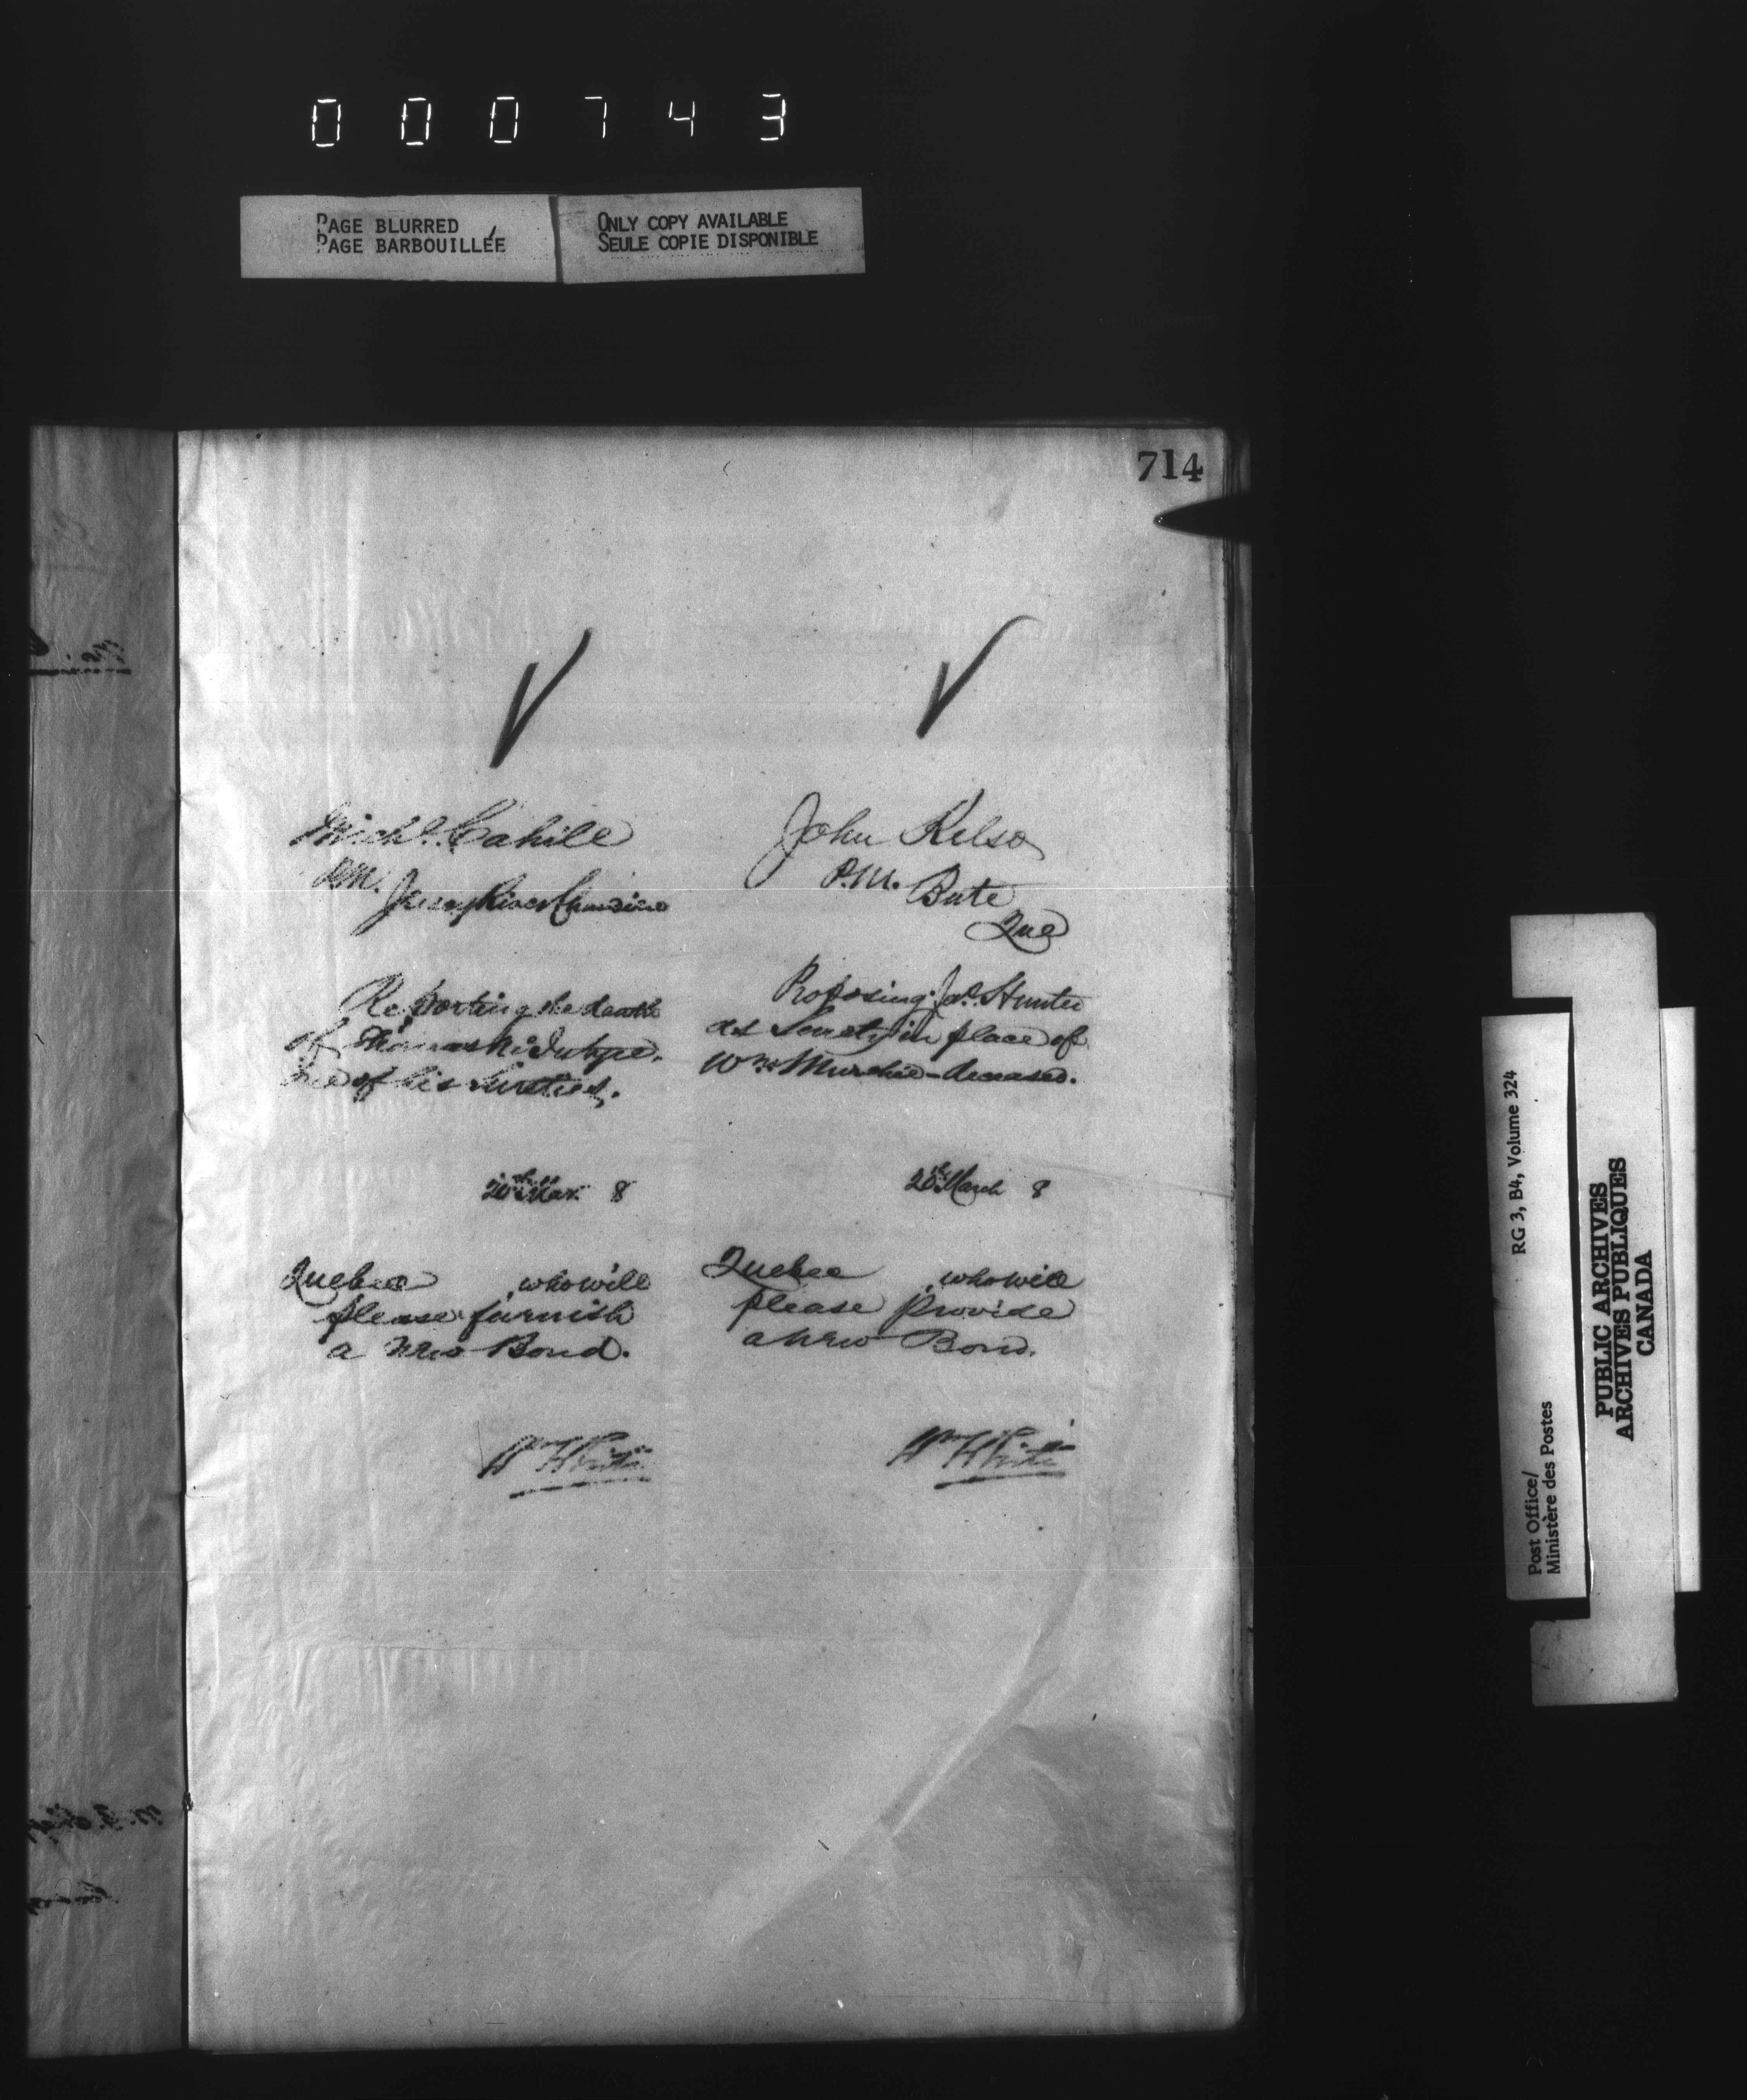 000743
PAGE BLURRED
PAGE BARBOUILLÉE
ONLY COPY AVAILABLE
SEULE COPIE DISPONIBLE
714
Michl. Cahill
P.M.
Jersey River Chaudiere
Reporting the death
of Thomas McIntyre.
one of his sureties.
20th Mar. 8
Quebec who will
please furnish
a new Bond.
Wm White
John Kelso
P.M. Bute
Que
Proposing Jas. Hunter
as Surety in place of
Wm. Murchie - deceased.
20th March 8
Quebec who will
please provide
a new Bond.
Wm White
RG 3, B4, Volume 324
Post Office/
Ministère des Postes
PUBLIC ARCHIVES
ARCHIVES PUBLIQUES
CANADA